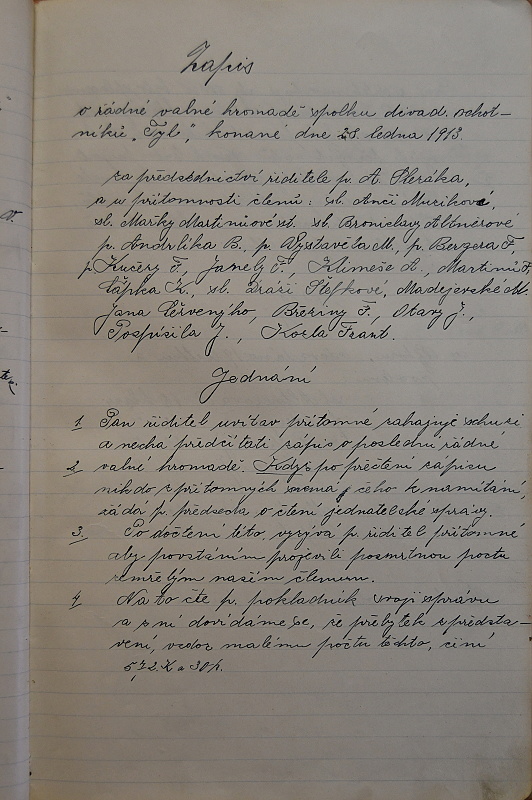 Zápis
o řádné valné hromadě spolku divad. ochot-
níků „Tyl“, konané dne 28. ledna 1913.
za předsednictví ředitele p. A. Sleráka,
a u přítomnosti členů: sl. Anči Muzikové,
sl. Mařky Martinůové st. sl. Bronislavy Altnerové
p. Andrlíka B., p. Vystavěla M., p. Bergera F.
p. Kučery F., Jamely F., Klimeše A., Martinů F.
Čápka K., sl. Dráži Štefkové, Madejevské M.
Jana Červeného, Březiny F., Otavy J.,
Pospíšila J., Kozla Frant.
Jednání
1. Pan ředitel uvítav přítomné zahajuje schůzi
a nechá předčítati zápis o poslední řádné
2. valné hromadě. Když po přečtení zápisu
nikdo z přítomných nemá čeho k namítání
žádá p. předseda o čtení jednatelské zprávy.
3. Po dočtení této, vyzývá p. ředitel přítomné
aby povstáním projevili posmrtnou poctu
zemřelým našim členům.
4. Na to čte p. pokladník svoji zprávu
a z ní dovídáme se, že přebytek z předsta-
vení, vzdor malému počtu těchto, činí
572 K a 30 h.